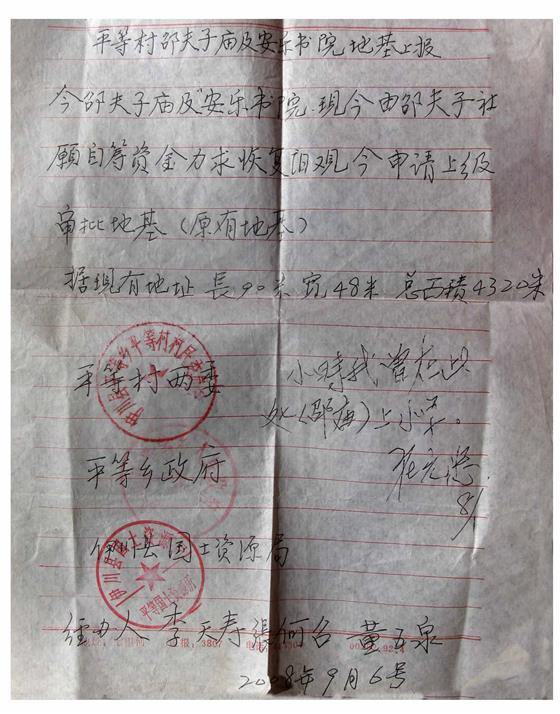 平等村邵夫子庙及安乐书院地基上报
今邵夫子庙及安乐书院.现今由邵夫子社
愿自筹资金力求恢复旧观今申请上级
审批地基(原有地基)
据现有地址 長90米 宽48米 总面積4320米
平等村两委
小時我曾在此
处(邵庙)上小学。
8/1
平等乡政府
伊川县国土资源局
经办人 李天寿 張何名 董五泉
2008年9月6号